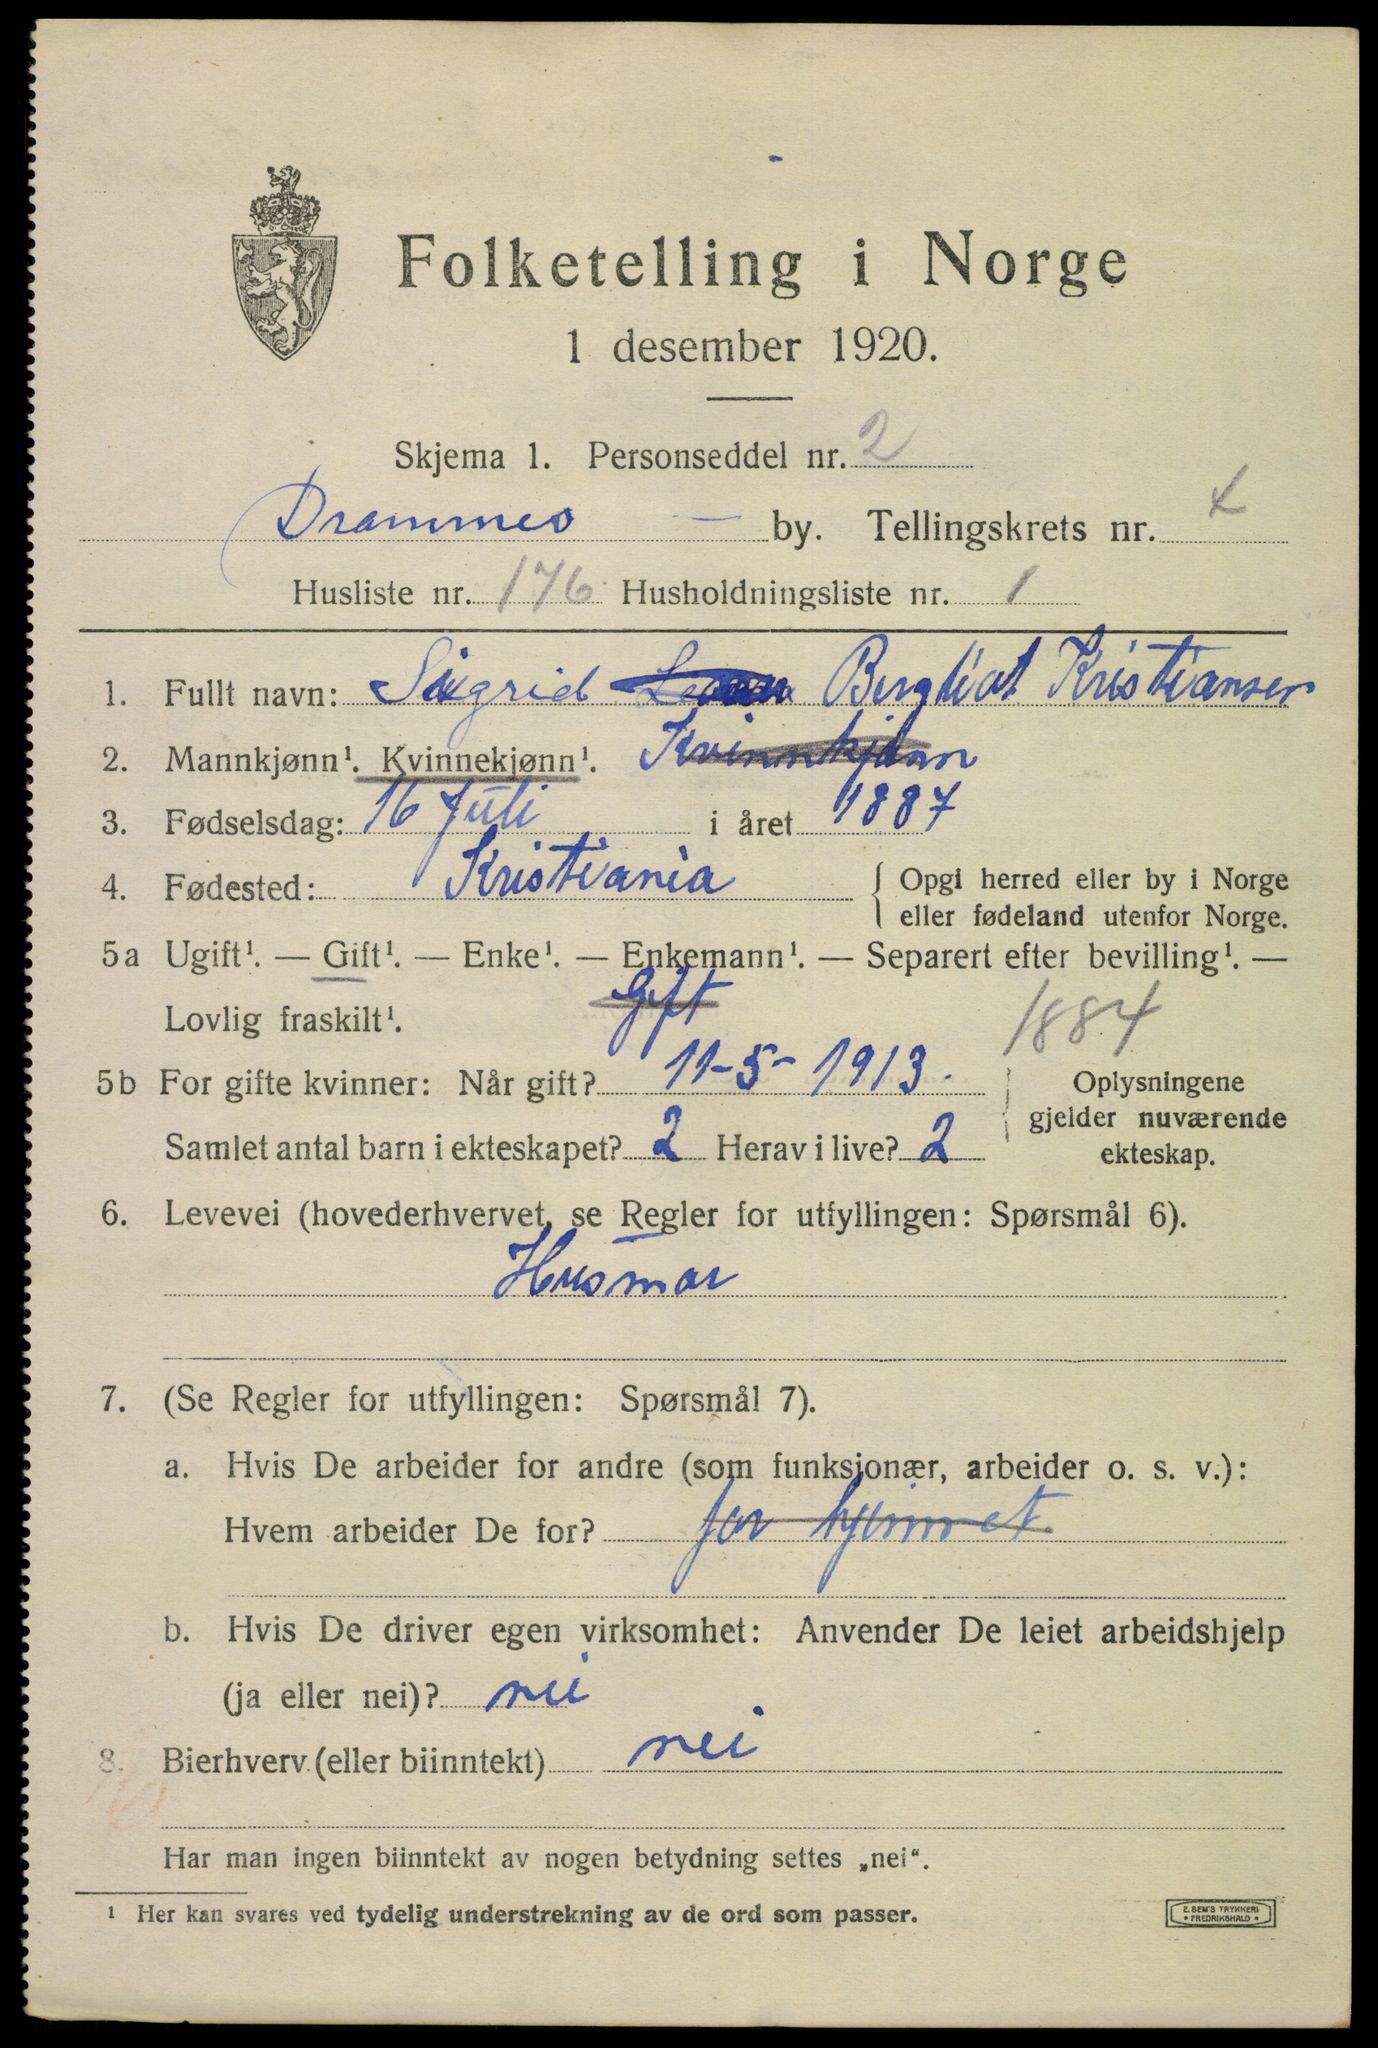 Folketelling i Norge
1 desember 1920.
Skjema 1. Personseddel nr. 2
Drammen — by. Tellingskrets nr. 4
Husliste nr. 176 Husholdningsliste nr. 1
1. Fullt navn: Sigrid Bergliot Kristiansen
2. Mannkjønn¹. Kvinnekjønn¹. Kvinnkjønn
3. Fødselsdag: 16 Juli i året 1887
4. Fødested: Kristiania { Opgi herred eller by i Norge
eller fødeland utenfor Norge.
5a Ugift¹. — Gift¹. — Enke¹. — Enkemann¹. — Separert efter bevilling¹. —
Lovlig fraskilt¹. Gift 1884
5b For gifte kvinner: Når gift? 11-5-1913. Oplysningene
gjelder nuværende
Samlet antal barn i ekteskapet? 2 Herav i live? 2 ekteskap.
6. Levevei (hovederhvervet, se Regler for utfyllingen: Spørsmål 6).
Husmor
7. (Se Regler for utfyllingen: Spørsmål 7).
a. Hvis De arbeider for andre (som funksjonær, arbeider o. s. v.):
Hvem arbeider De for? for hjemmet
b. Hvis De driver egen virksomhet: Anvender De leiet arbeidshjelp
(ja eller nei)? nei
8. Bierhverv (eller biinntekt) nei
Har man ingen biinntekt av nogen betydning settes „nei“.
¹ Her kan svares ved tydelig understrekning av de ord som passer.
E. SEM'S TRYKKERI
• FREDRIKSHALD •